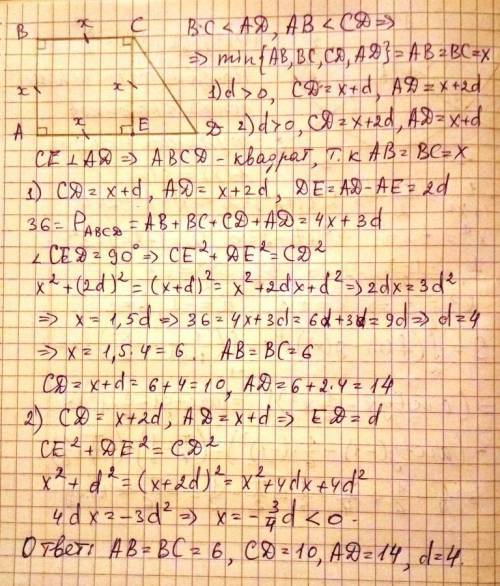 B x C
BC < AD, AB < CD ⇒
⇒ min{AB, BC, CD, AD} = AB = BC = x
x x
1) d > 0, CD = x+d, AD = x+2d
x
A E D
2) d > 0, CD = x+2d, AD = x+d
CE ⊥ AD ⇒ ABCD - квадрат, т.к AB = BC = x
1) CD = x+d, AD = x+2d, DE = AD - AE = 2d
36 = P_ABCD = AB + BC + CD + AD = 4x + 3d
∠CED = 90° ⇒ CE² + DE² = CD²
x² + (2d)² = (x+d)² = x² + 2dx + d² ⇒ 2dx = 3d²
⇒ x = 1,5d ⇒ 36 = 4x + 3d = 6d + 3d = 9d ⇒ d = 4
⇒ x = 1,5·4 = 6. AB = BC = 6
CD = x+d = 6+4 = 10, AD = 6+2·4 = 14
2) CD = x+2d, AD = x+d ⇒ ED = d
CE² + DE² = CD²
x² + d² = (x+2d)² = x² + 4dx + 4d²
4dx = -3d² ⇒ x = -3/4 d < 0.
Ответ: AB = BC = 6, CD = 10, AD = 14, d = 4.